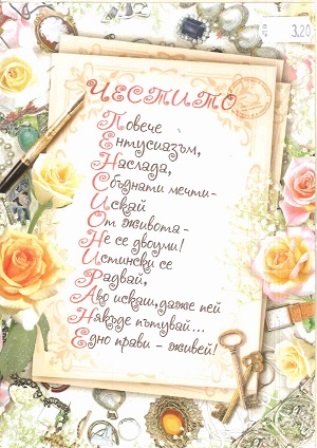 3.20
ЧЕСТИТО
Повече
Ентусиазъм,
Наслада,
Сбъднати мечти-
Искай
От живота-
Не се двоуми!
Истински се
Радвай,
Ако искаш, даже пей
Някъде пътувай...
Едно прави - живей!